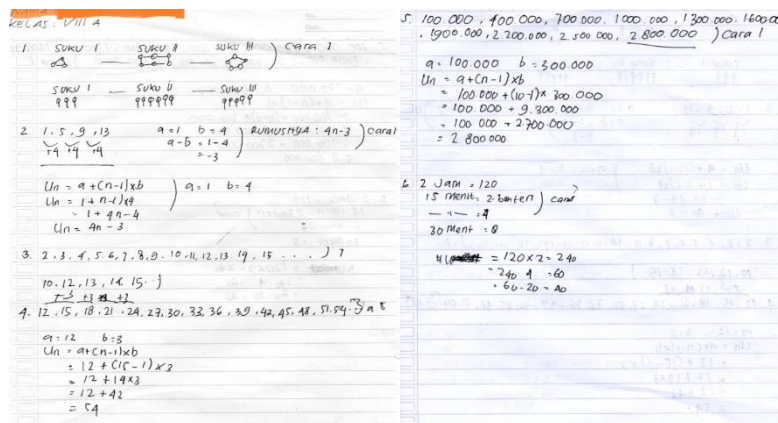 KELAS : VIII A
1. SUKU I — SUKU II — SUKU III ) Cara 1
SUKU I — SUKU II — SUKU III
2. 1, 5, 9, 13 a=1 b=4 ) RUMUSNYA : 4n-3 ) Cara 1
+4 +4 +4 a-b = 1-4
= -3
Un = a+(n-1)xb ) a=1 b=4
Un = 1+n-1)x4
= 1+4n-4
Un = 4n-3
3. 2. 3. 4, 5. 6, 7, 8, 9. 10. 11, 12. 13. 14, 15 . . . . ) ?
10. 12, 13, 14, 15..}
4. 12, 15, 18, 21, 24, 27, 30, 33, 36, 39, 42, 45. 48, 51, 54.
a=12 b=3
Un = a+(n-1)xb
= 12 + (15-1)x3
= 12 + 14x3
= 12 + 42
= 54
5. 100.000, 400 000, 700.000. 1000.000, 1300.000. 1600.00
. 1900.000, 2.200.000, 2.500.000, 2800.000 ) Cara 1
a = 100.000 b = 300.000
Un = a+(n-1)xb
= 100.000 + (10-1)x 300.000
= 100 000 + 9.300.000
= 100 000 + 2.700.000
= 2.800.000
6. 2 Jam = 120
15 menit =
— " — = 4
30 Menit = 8
= 120 x 2 = 240
= 240 4 = 60
= 60-20 = 40